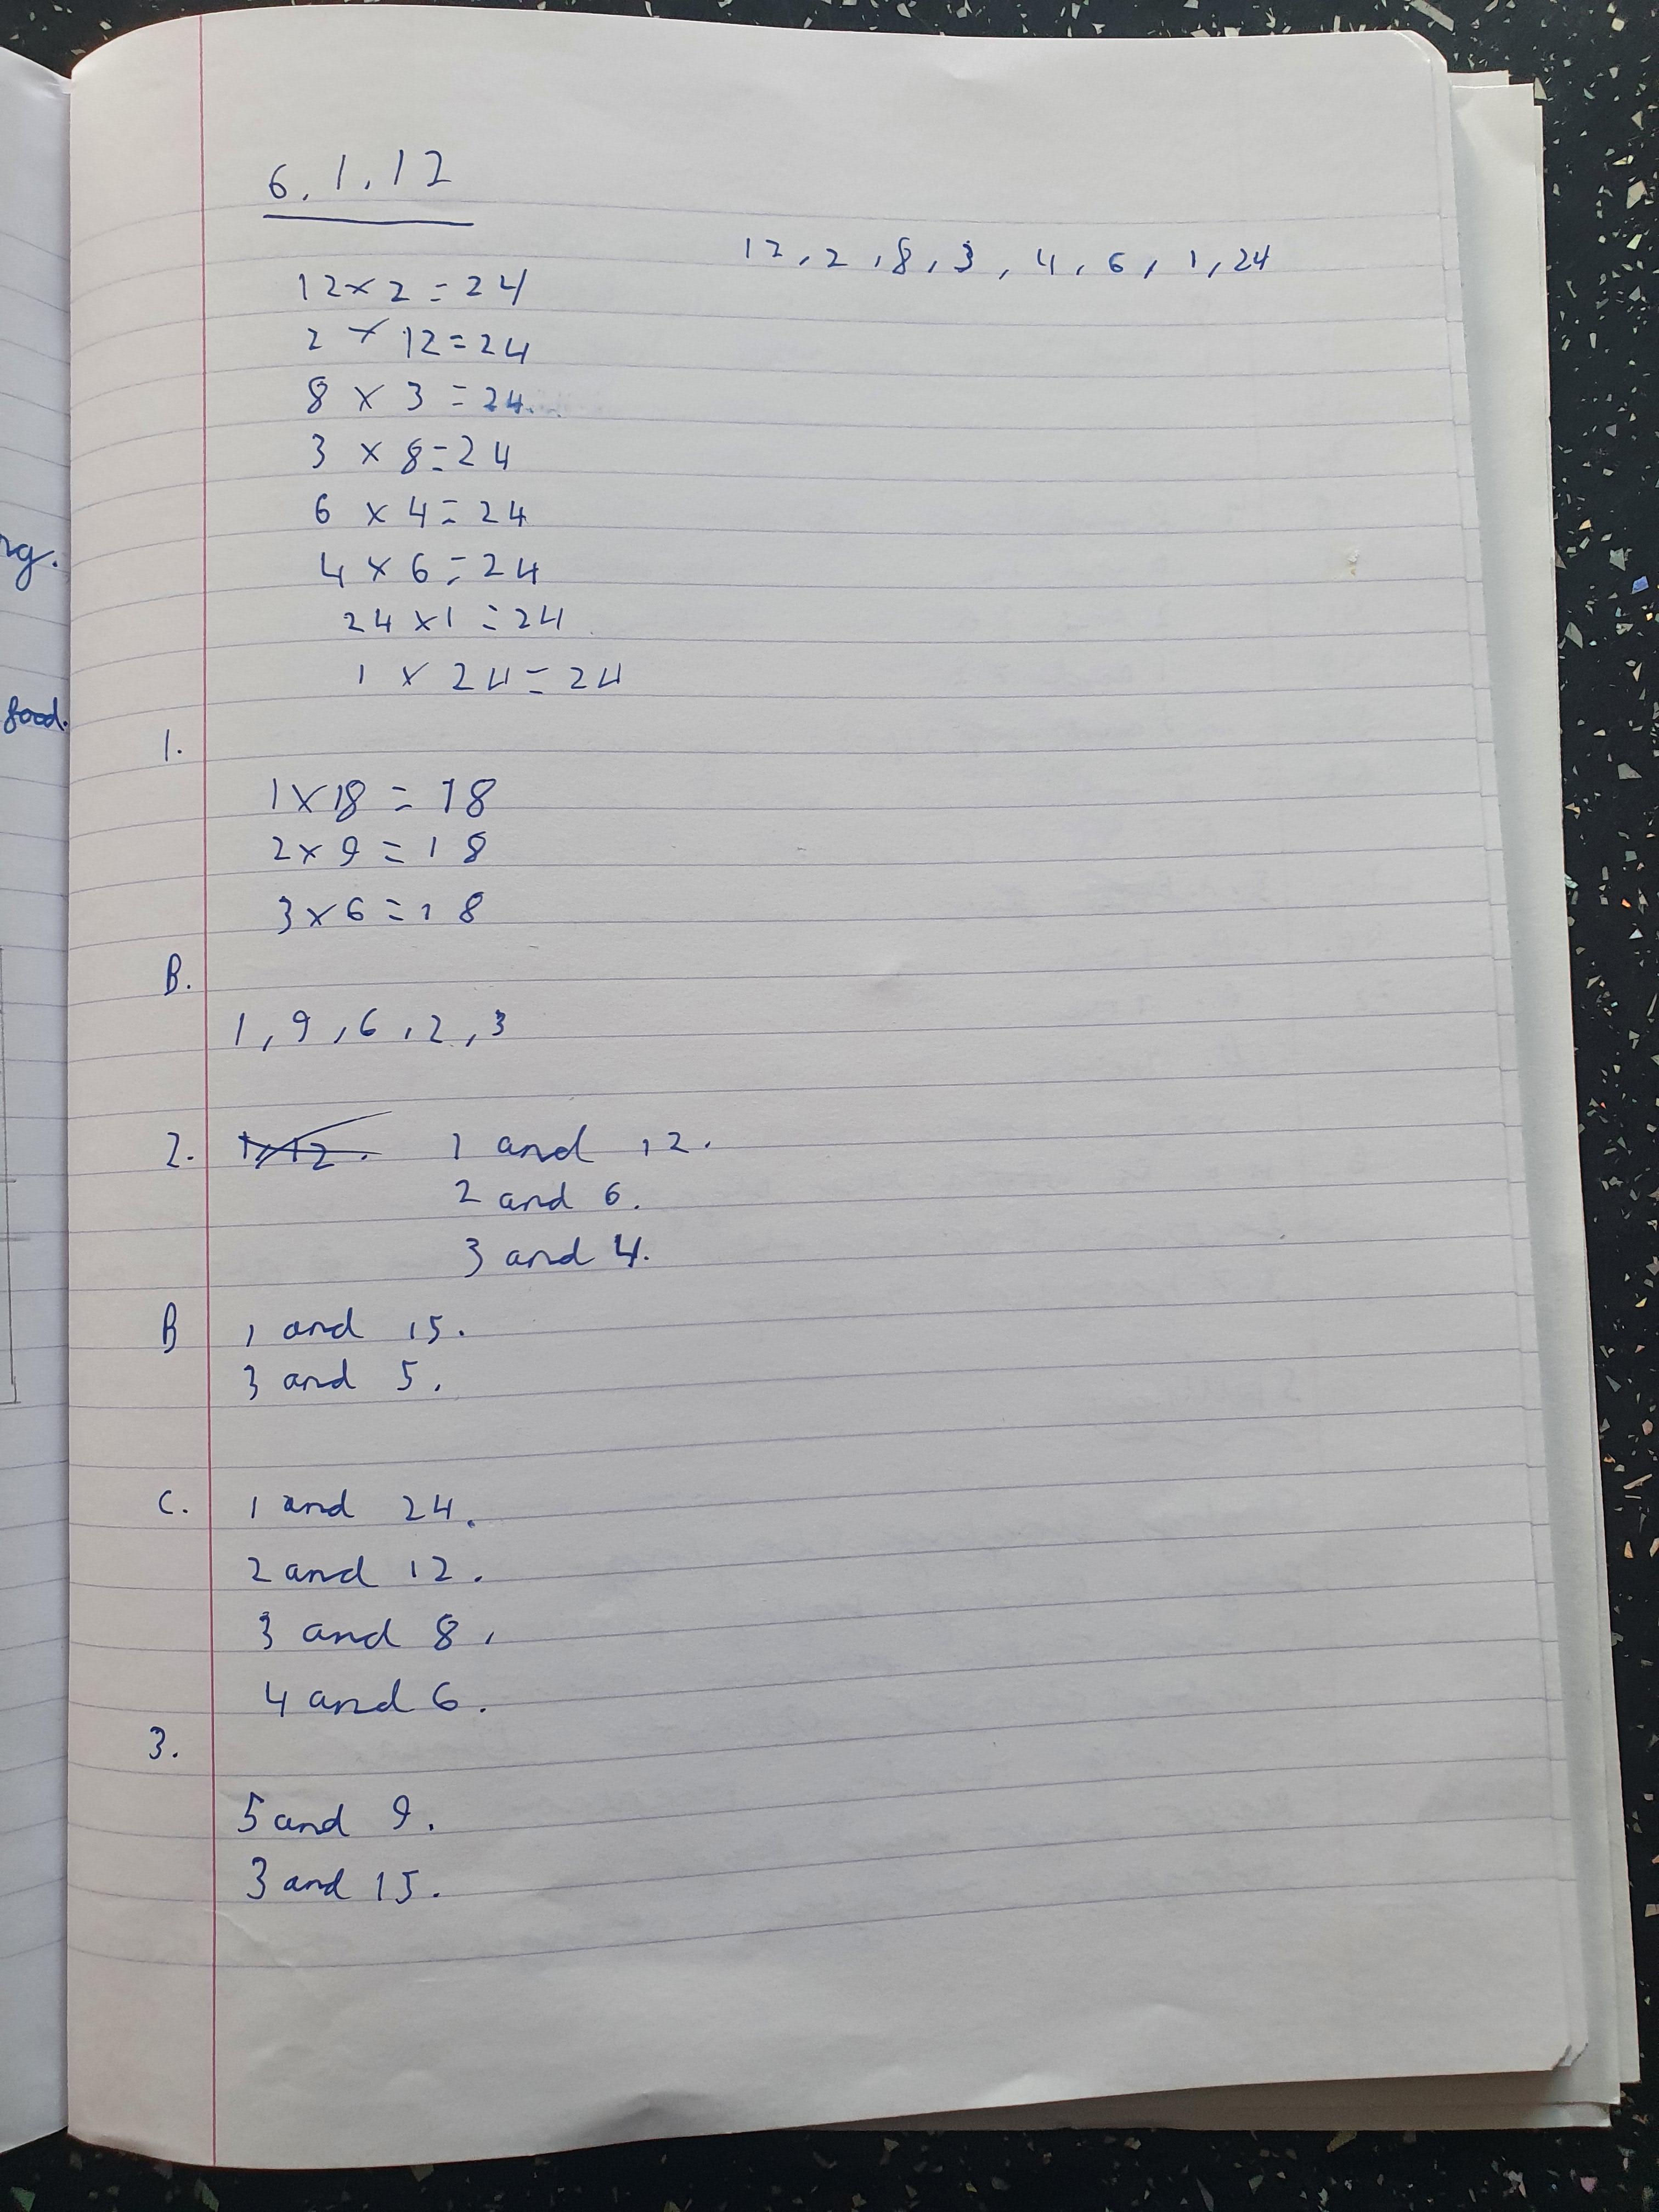 6.1.12
12, 2, 8, 3, 4, 6, 1, 24
12 x 2 = 24
2 x 12 = 24
8 x 3 = 24.
3 x 8 = 24
6 x 4 = 24
4 x 6 = 24
24 x 1 = 24
1 x 24 = 24
1.
1 x 18 = 18
2 x 9 = 18
3 x 6 = 18
B.
1, 9, 6, 2, 3
2. 1 and 12.
2 and 6.
3 and 4.
B 1 and 15.
3 and 5.
C. 1 and 24.
2 and 12.
3 and 8.
4 and 6.
3.
5 and 9.
3 and 15.
food.